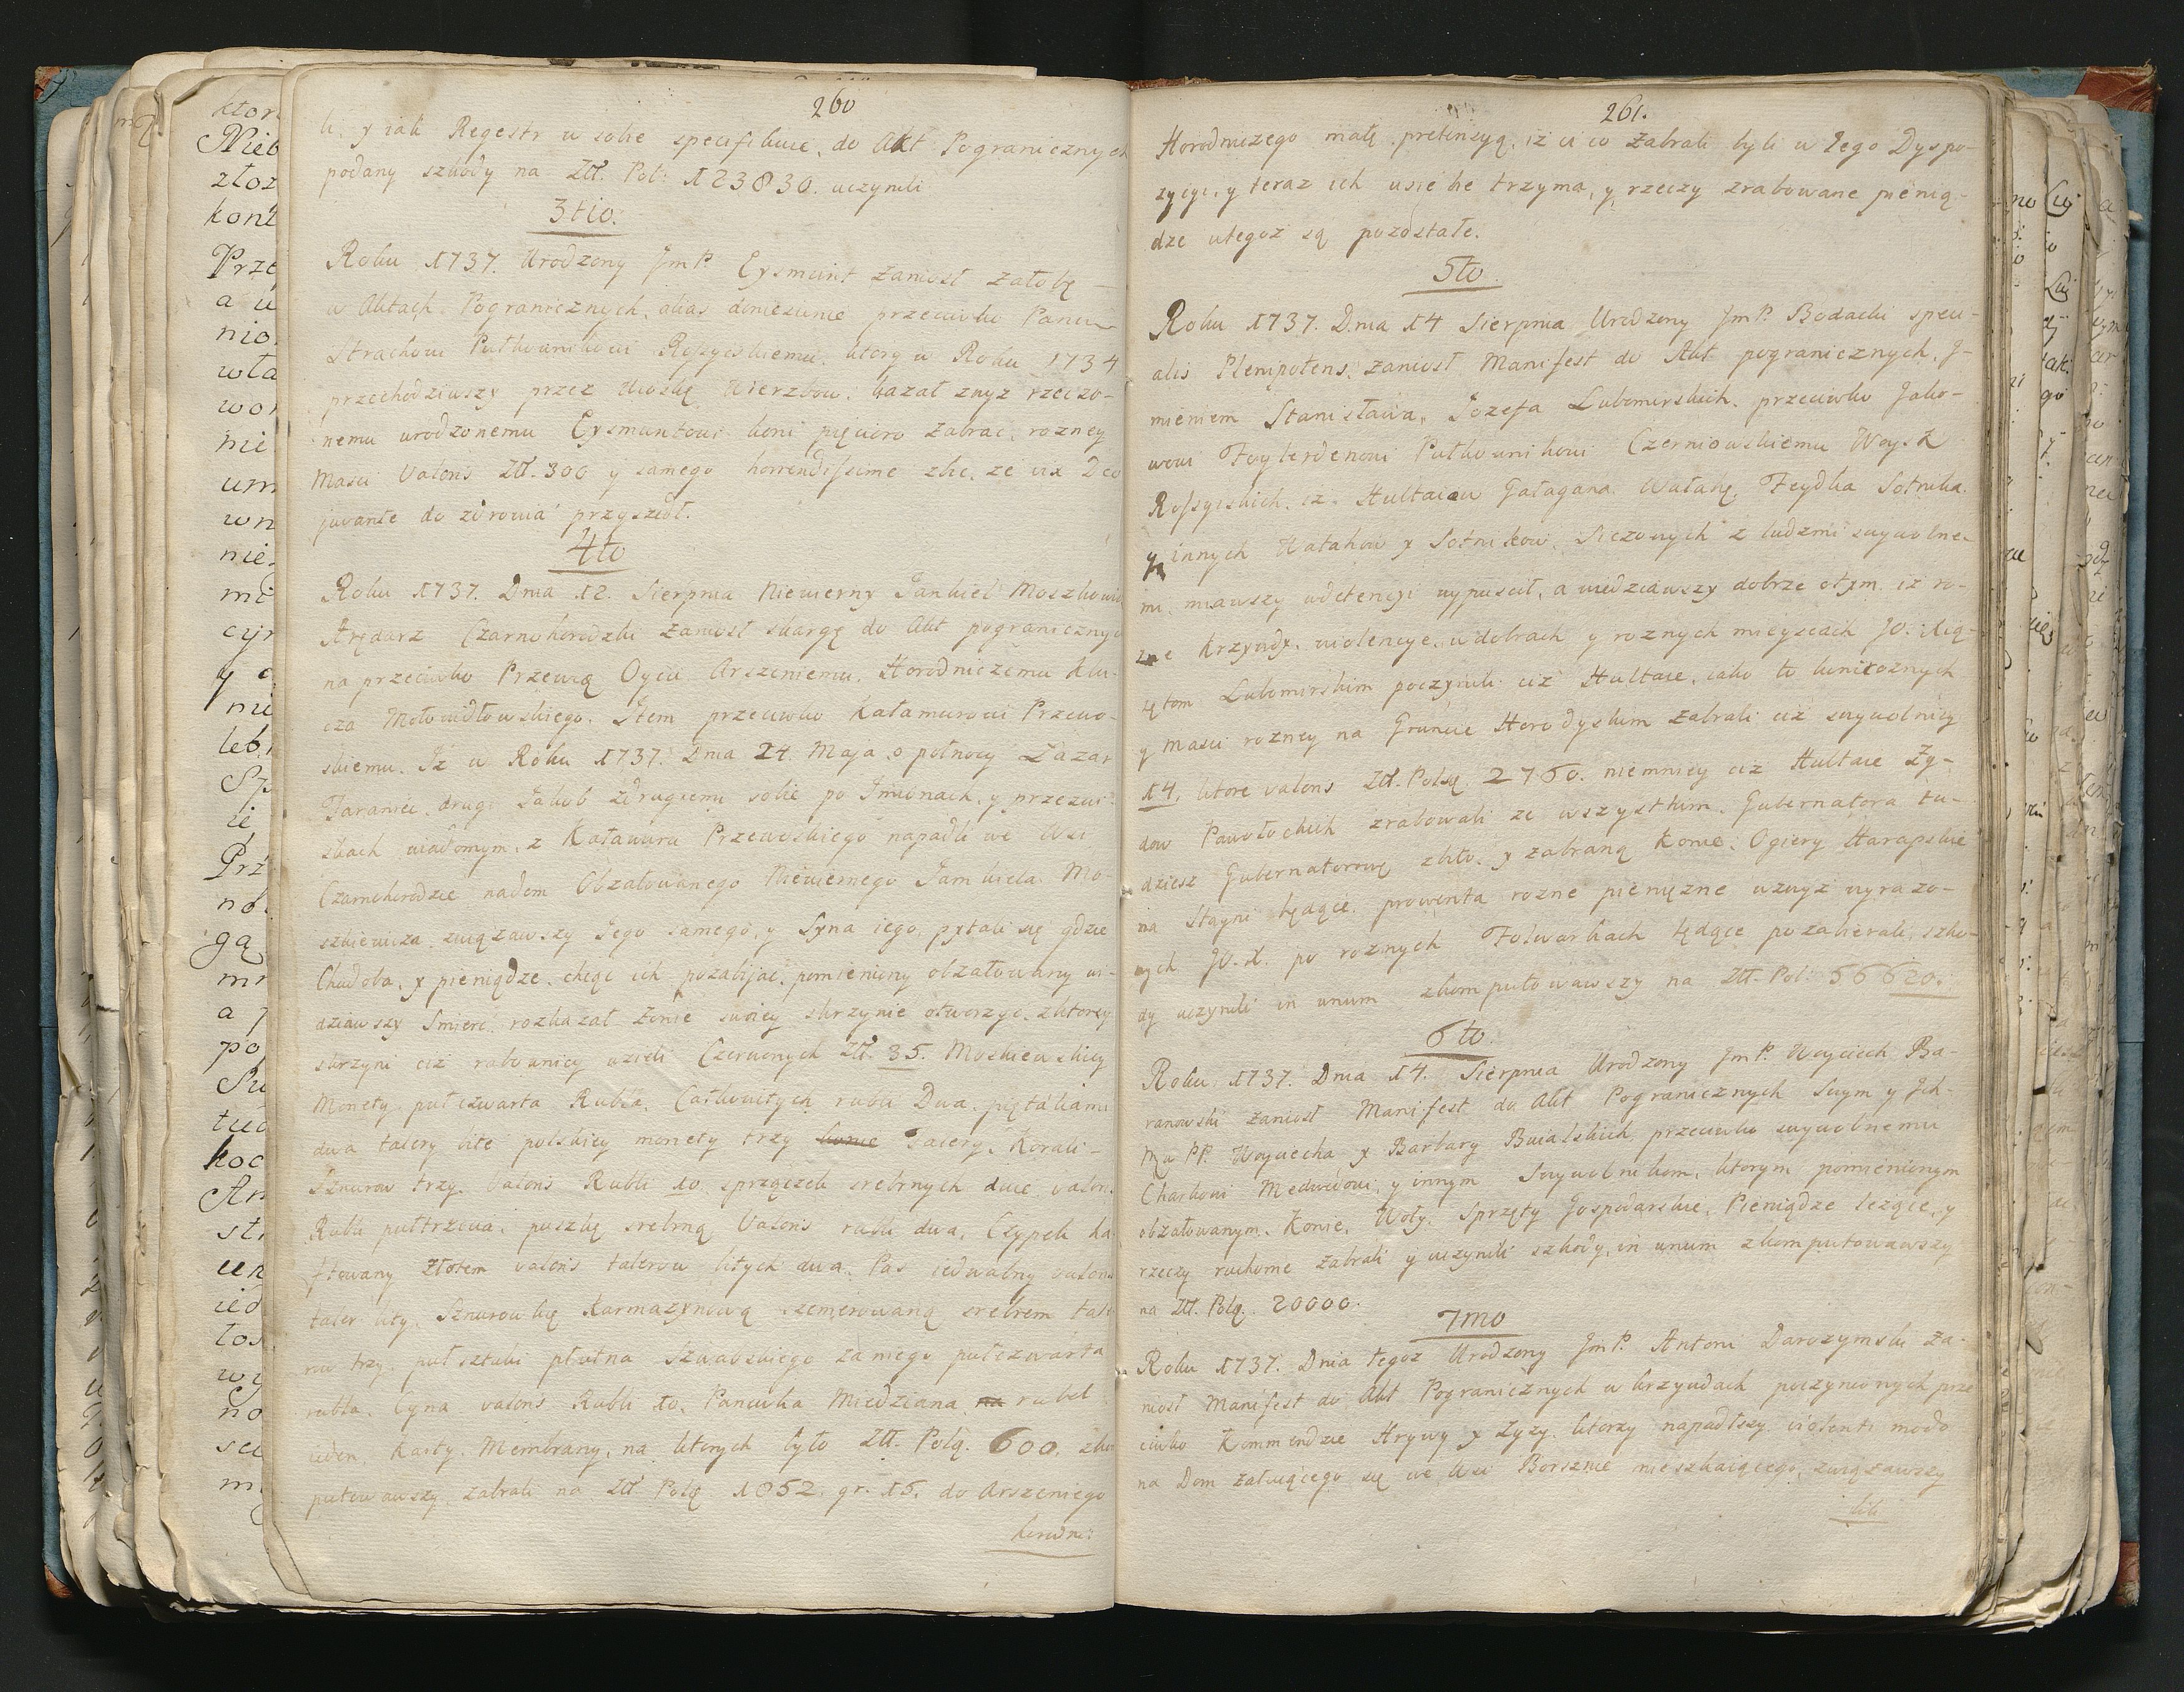 260
li. y iak Regestr w sobie specifikuie, do Akt Pogranicznych
podany szkody na Złł. Pol: 123830. uczynili
3tio.
Roku 1737. Urodzony JmP. Eysmunt zaniosł załobę
w Aktach Pogranicznych, alias doniesienie przeciwko Panu
Strachowi Pułkownikowi Rossyiskiemu, ktory w Roku 1734
przechodziwszy przez Wioskę Wierzbow. kazał znyż rzeczo-
nemu urodzonemu Eysmuntowi koni pięcioro zabrac, rozney
Masci Valoris Złł. 300 y samego horrendissime zbic, ze vix Deo
juvante do zdrowia przyszedł.
4to
Roku 1737. Dnia 12. Sierpnia Niewierny Jankiel Moszkowic
Arędarz Czarnohorodzki zaniosł skargę do Akt pogranicznych
na przeciwko Przewią Oycu Arszeniemu, Horodniczemu Klu-
cza Mołowidłowskiego. Item przeciwko Kałamurowi Przewo-
skiemu. Iż w Roku 1737. Dnia 24. Maja o połnocy Łazar
Taraniec, drugi Jakob z drugiemi sobie po Imionach, y przezwi-
skach wiadomym, z Kałamura Przewoskiego napadli we Wsi
Czarnohorodzie na dom Obzałowanego Niewiernego Jankiela Mo-
szkiewicza, związawszy Jego samego, y Syna iego, pytali się gdzie
Chudoba, y pieniądze, chcąc ich pozabijac, pomieniony obzałowany wi-
dziawszy Smierc rozkazał Żonie swoiey skrzynie otworzyc, z ktorey
skrzyni ciż rabownicy wzieli Czerwonych Złł. 35. Moskiewskiey
Monety pułczwarta Rubla, Całkowitych rubli Dwa, piętakami
dwa talery bite polskiey monety trzy konie Talery, Korali-
Sznurow trzy. Valoris Rubli 10 sprzążek srebrnych dwie valoris
Rubli pułtrzecia, puszkę srebrną Valoris rubli dwa, Czypek ha-
ftowany Złotem valoris talerow bitych dwa, Pas iedwabny valoris
taler bity, Sznurowkę Karmazynową szemerowaną srebrem tale-
row trzy, puł sztuki płutna Szwabskiego za niego pułczwarta
rubla, Cyna valoris Rubli 10. Panewka Miedziana na rubel
ieden, Karty, Membrany, na ktorych było Złł. Polą. 600. zkom
putowawszy, zabrali na Złł Polą 1052. gr. 15. do Arszeniego
horodni:
261.
Horodniczego maię pretensyą, iż ci co zabrali byli w Iego Dyspo-
zycyi, y teraz ich u siebie trzyma, y rzeczy zrabowane pienią-
dze u tegoż są pozostałe.
5to.
Roku 1737. Dnia 14 Sierpnia Urodzony JmP. Bodacki speci-
alis Plenipotens, zaniosł Manifest do Akt pogranicznych, J-
mieniem Stanisława, Jozefa Lubomirskich, przeciwko Jako-
wowi Feylerdenowi Pułkownikowi Czerniowskiemu Woysk
Rossyiskich, iz Hultaiow Gałagana Watahę, Feydka Sotnika
y innych Watahow y Sotnikow, Siczowych z ludzmi swywolne-
mi, miawszy w detencyi wypuscił, a wiedziawszy dobrze o tym, iz ro-
zne krzywdy, violencye, w dobrach y roznych mieyscach JO. Xią-
żętom Lubomirskim poczynili ciż Hultaie, iako to koni roznych
y Masci rozney na Gruncie Horodyskim zabrali ciż swywolnicy
14. ktore valoris Złł. Polsą 2760. niemniey ciż Hultaie Ży-
dow Pawołockich zrabowali ze wszystkim, Gubernatora tu-
dziesz Gubernatorowę zbito, y zabraną Konie; Ogiery Harapskie
na Stayni będące, prowenta rozne pienięzne wzwyż wyrazo-
nych JO. X. po roznych Folwarkach będące pozabierali, szko-
dy uczynili in unum zkomputowawszy na Złł. Pol: 56620.
6to.
Roku 1737. Dnia 14. Sierpnia Urodzony JmP. Woyciech Ba-
ranowski zaniosł Manifest do Akt Pogranicznych Swym y Ich-
Mu PP. Woyciecha y Barbary Buialskich, przeciwko swywolnemu
Charkowi Medwidowi, y innym Swywolnikom, ktorym pomienionym
obzałowanym, Konie, Woły, Sprzęty Gospodarskie, Pieniądze lezące, y
rzeczy ruchome zabrali y uczynili szkody, in unum zkomputowawszy
na Złł. Polą. 20000.
7mo
Roku 1737. Dnia tegoz Urodzony JmP. Antoni Darozymski za-
niosł Manifest do Akt Pogranicznych w krzywdach poczynionych prze
ciwko Kommendzie Hrywy y Łyzy, ktorzy napadłszy violenti modo
na Dom załuiącego się we Wsi Borsznie mieszkaiącego, związawszy
bili